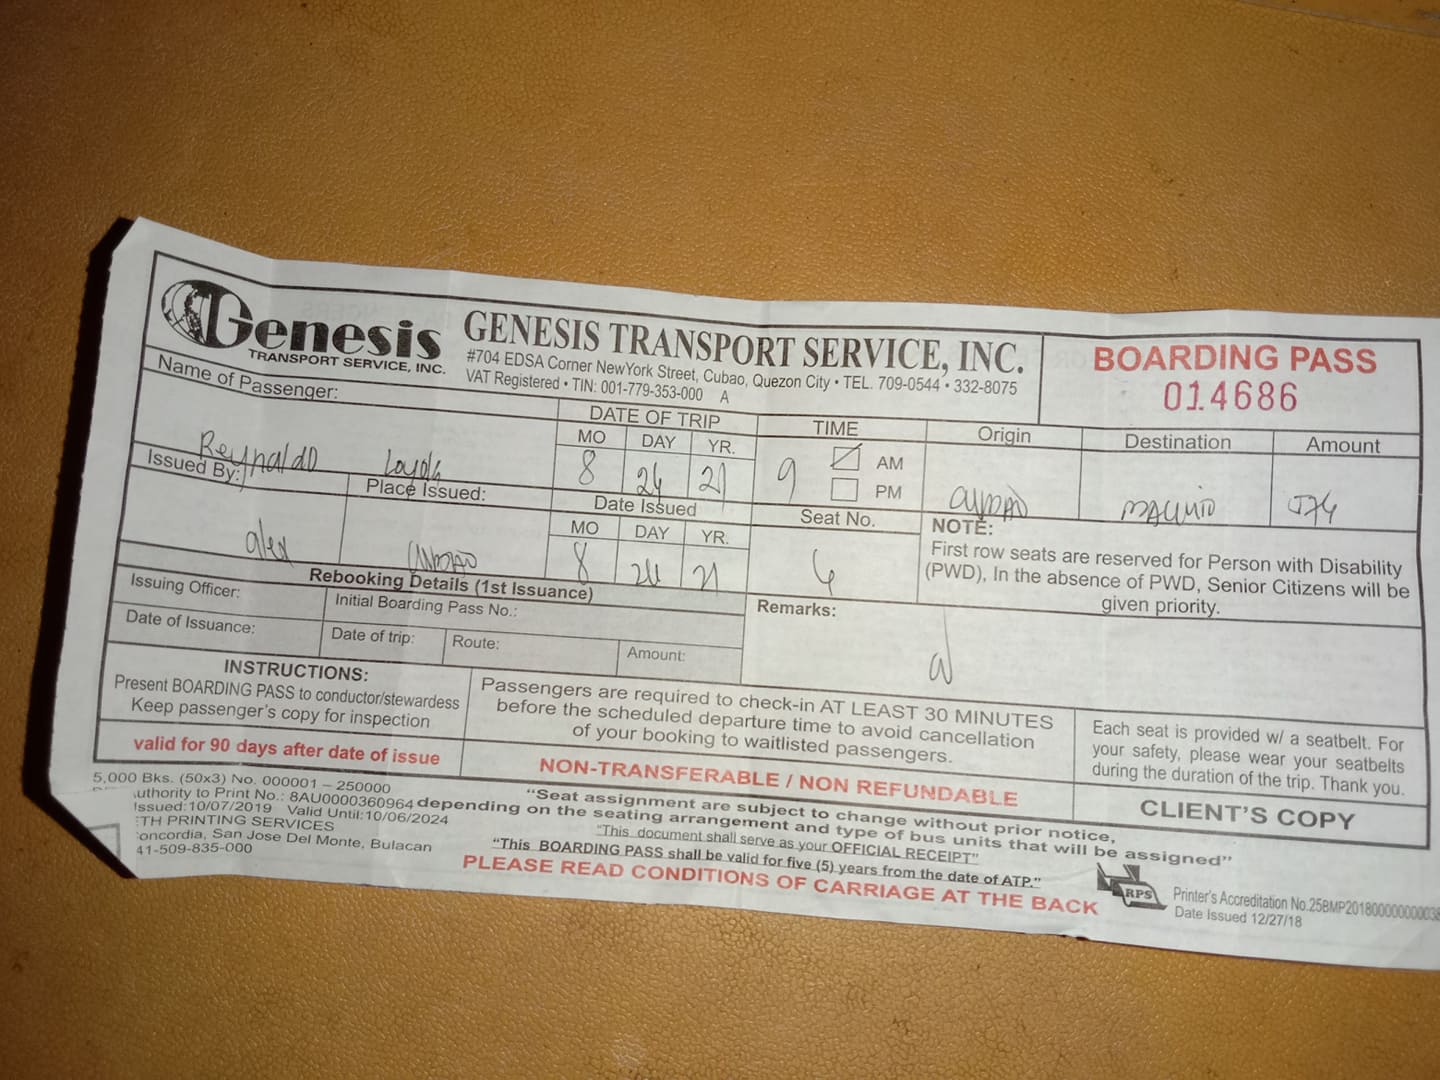 Genesis
TRANSPORT SERVICE, INC.
GENESIS TRANSPORT SERVICE, INC.
#704 EDSA Corner NewYork Street, Cubao, Quezon City • TEL. 709-0544 • 332-8075
VAT Registered • TIN: 001-779-353-000 A
BOARDING PASS
014686
Name of Passenger:
Reynaldo Loyola
DATE OF TRIP
MO DAY YR.
8 24 21
TIME
9 AM
PM
Origin
Cubao
Destination
Amount
Issued By:
alex
Place Issued:
Cubao
Date Issued
MO DAY YR.
8 24 21
Seat No.
NOTE:
First row seats are reserved for Person with Disability
(PWD), In the absence of PWD, Senior Citizens will be
given priority.
Rebooking Details (1st Issuance)
Issuing Officer:
Initial Boarding Pass No.:
Date of Issuance:
Date of trip:
Route:
Amount:
Remarks:
INSTRUCTIONS:
Present BOARDING PASS to conductor/stewardess
Keep passenger's copy for inspection
valid for 90 days after date of issue
Passengers are required to check-in AT LEAST 30 MINUTES
before the scheduled departure time to avoid cancellation
of your booking to waitlisted passengers.
NON-TRANSFERABLE / NON REFUNDABLE
Each seat is provided w/ a seatbelt. For
your safety, please wear your seatbelts
during the duration of the trip. Thank you.
CLIENT'S COPY
5,000 Bks. (50x3) No. 000001 – 250000
uthority to Print No.: 8AU0000360964
Issued:10/07/2019 Valid Until:10/06/2024
TH PRINTING SERVICES
oncordia, San Jose Del Monte, Bulacan
41-509-835-000
"Seat assignment are subject to change without prior notice,
depending on the seating arrangement and type of bus units that will be assigned"
"This document shall serve as your OFFICIAL RECEIPT"
"This BOARDING PASS shall be valid for five (5) years from the date of ATP."
PLEASE READ CONDITIONS OF CARRIAGE AT THE BACK
RPS
Printer's Accreditation
Date Issued 12/27/18